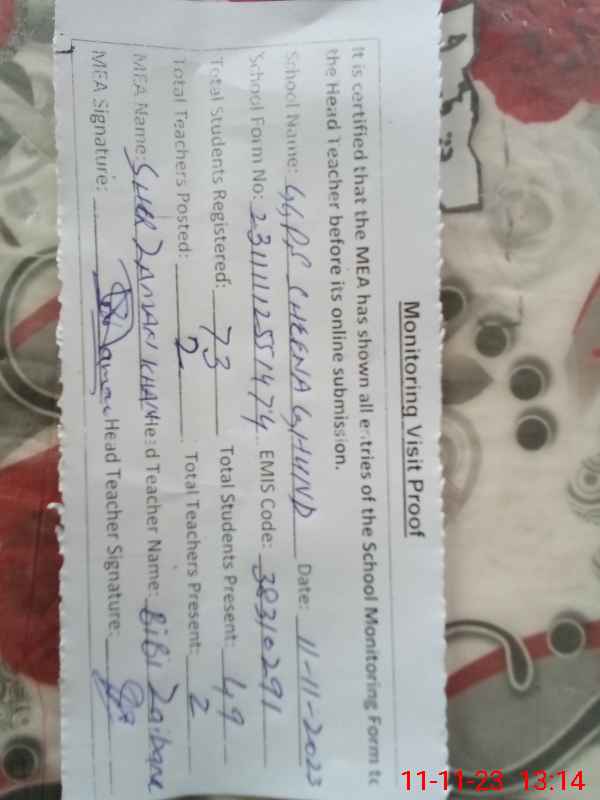 Monitoring Visit Proof
It is certified that the MEA has shown all entries of the School Monitoring Form to
the Head Teacher before its online submission.
School Name: GGPS CHEENA GHUND Date: 11-11-2023
School Form No: EMIS Code: 38310291
Total Students Registered: 73 Total Students Present: 49
Total Teachers Posted: 2 Total Teachers Present: 2
MEA Name: SHER ZAMAN KHAN Head Teacher Name: BiBi
MEA Signature: Head Teacher Signature:
11-11-23 13:14